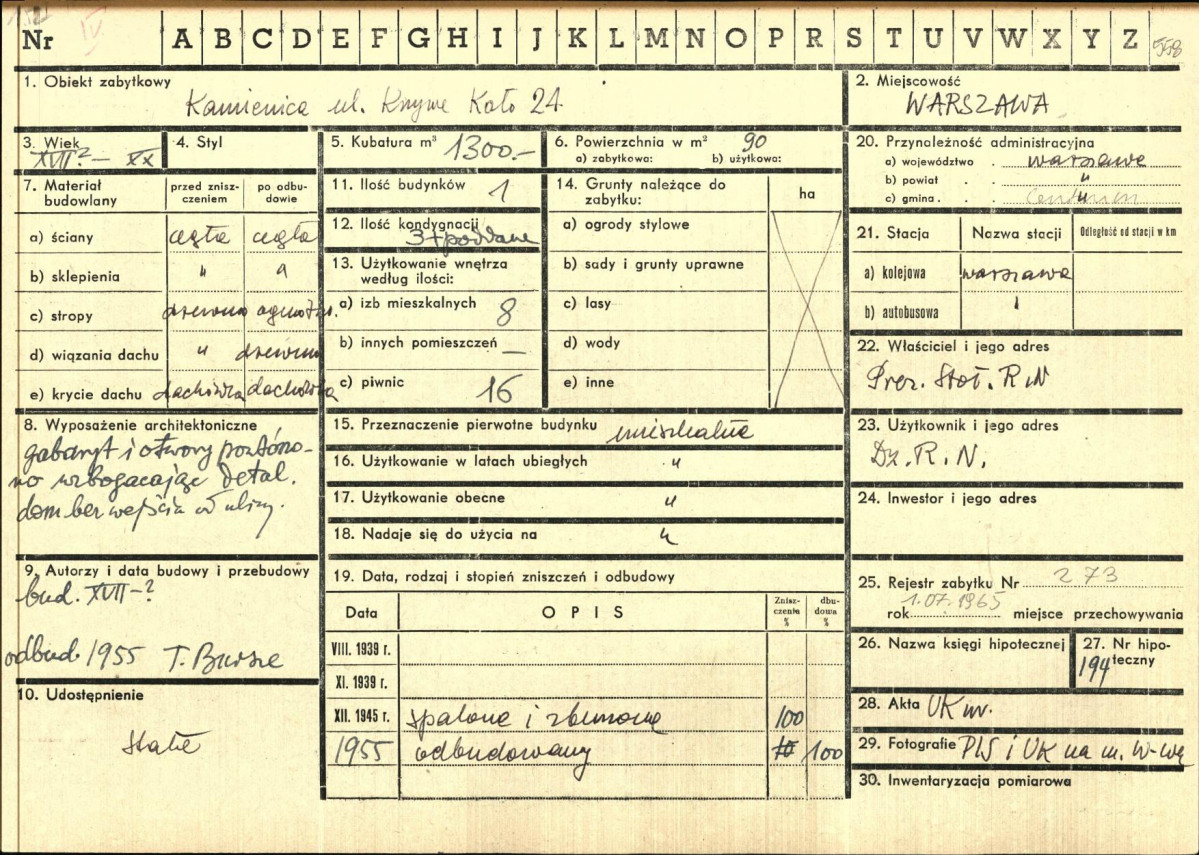 Nr IV. A B C D E F G H I J K L M N O P R S T U V W X Y Z 558
1. Obiekt zabytkowy
Kamienica ul. Krzywe Koło 24
2. Miejscowość
WARSZAWA
3. Wiek
XVII? – XX
4. Styl
5. Kubatura m³ 1300.-
6. Powierzchnia w m² 90
a) zabytkowa: b) użytkowa:
20. Przynależność administracyjna
a) województwo . warszawa
b) powiat . . "
c) gmina . .
7. Materiał budowlany
przed zniszczeniem
po odbudowie
a) ściany cegła cegła
b) sklepienia " "
c) stropy drewno ogniotrw.
d) wiązania dachu " drewno
e) krycie dachu dachówka dachówka
11. Ilość budynków 1
12. Ilość kondygnacji
3+poddasze
13. Użytkowanie wnętrza
według ilości:
a) izb mieszkalnych 8
b) innych pomieszczeń –
c) piwnic 16
14. Grunty należące do
zabytku:
ha
a) ogrody stylowe
b) sady i grunty uprawne
c) lasy
d) wody
e) inne
21. Stacja Nazwa stacji Odległość od stacji w km
a) kolejowa warszawa
b) autobusowa "
22. Właściciel i jego adres
Prez. Stoł. R N
8. Wyposażenie architektoniczne
gabaryt i otwory powtórzo-
no wzbogacając detal.
dom bez wejścia od ulicy.
15. Przeznaczenie pierwotne budynku mieszkalne
16. Użytkowanie w latach ubiegłych "
17. Użytkowanie obecne "
18. Nadaje się do użycia na "
23. Użytkownik i jego adres
Dz. R. N.
24. Inwestor i jego adres
9. Autorzy i data budowy i przebudowy
bud. XVII-?
odbud. 1955 T. Bursze
10. Udostępnienie
stałe
19. Data, rodzaj i stopień zniszczeń i odbudowy
Data OPIS Zniszczenia % dbudowa %
VIII. 1939 r.
XI. 1939 r.
XII. 1945 r. spalone i zburzone 100
1955 odbudowany 100
25. Rejestr zabytku Nr 273
rok 1.07.1965 miejsce przechowywania
26. Nazwa księgi hipotecznej
27. Nr hipoteczny
194
28. Akta UK mv.
29. Fotografie PIS i UK na m. W-wę
30. Inwentaryzacja pomiarowa